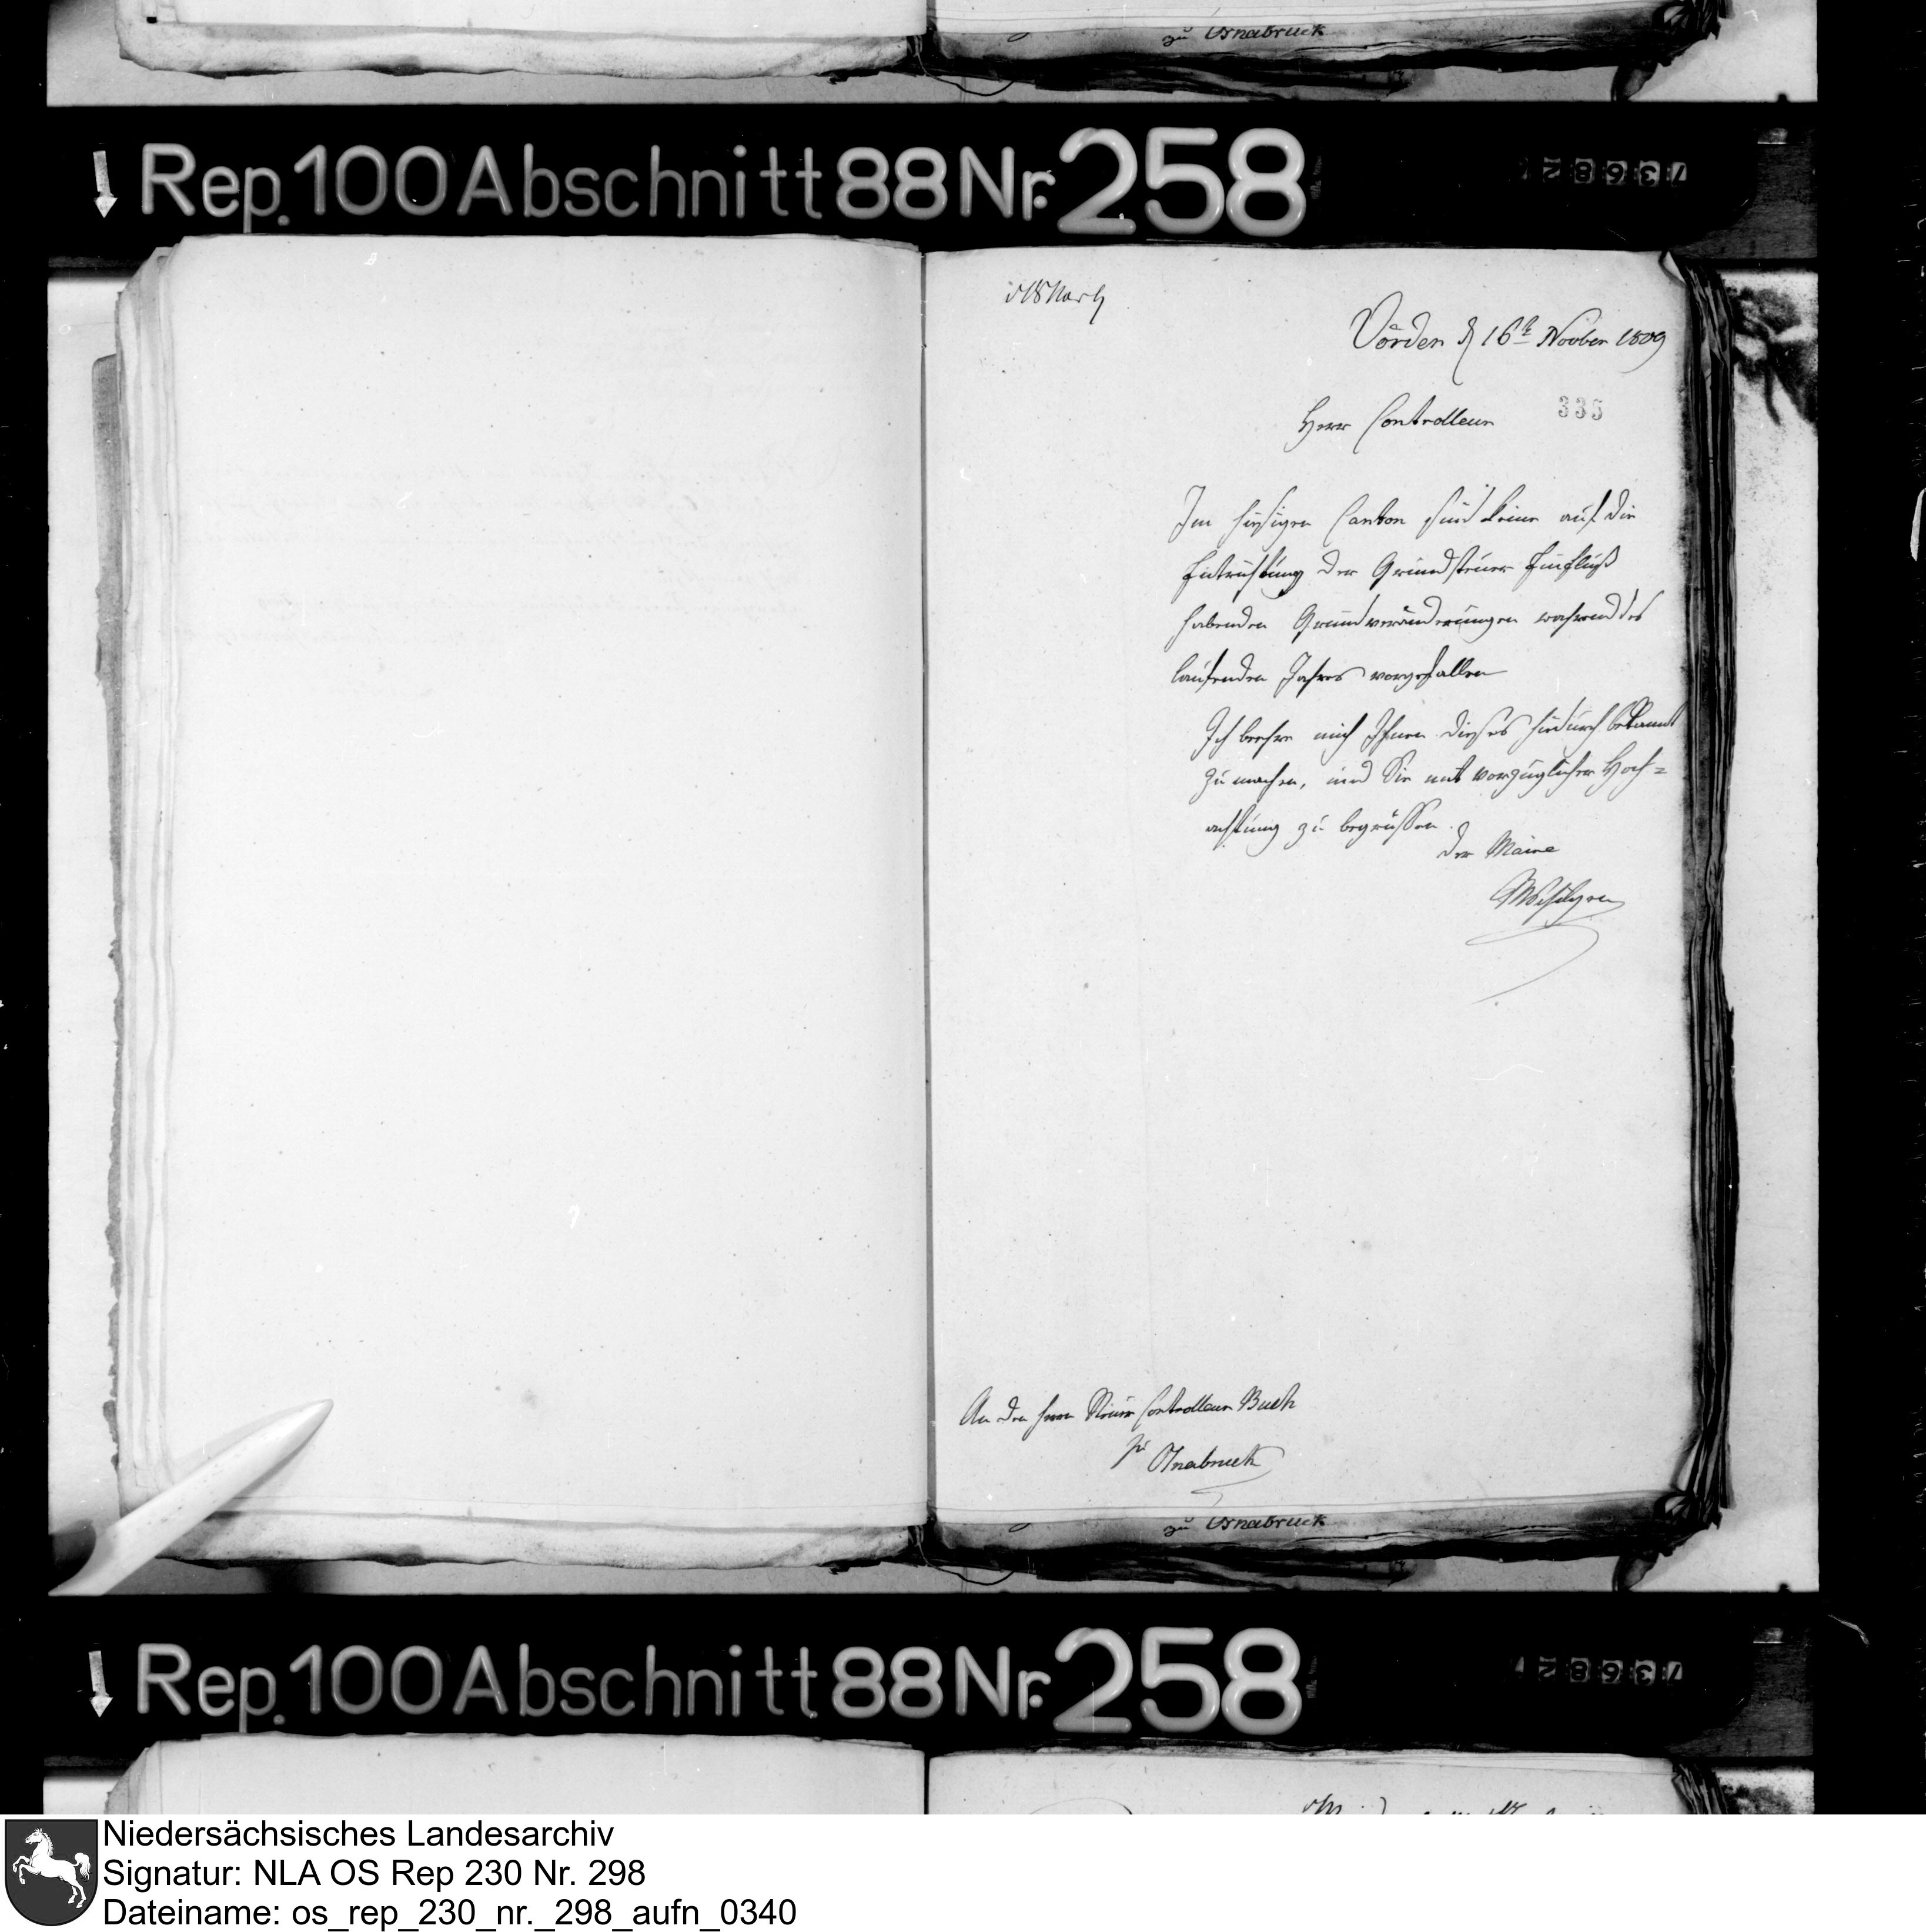 zu Osnabruck
Rep. 100 Abschnitt 88 Nr. 258
Vörden d 16t Novber 1809
Herr Controlleur
336
Im hiesigen Canton sind keine auf die
Entrichtung der Grundsteuer Einfluß
habenden Grundveränderungen wahrend des
laufenden Jahres vorgefallen
Ich beehre mich Ihnen dieses hiedurch bekannt
zu machen, und Sie mit vorzüglicher Hoch=
achtung zu begrüssen.
Der Maire
An den Herrn Steuer Controlleur Buck
zu Osnabruck
zu Osnabruck
Rep. 100 Abschnitt 88 Nr. 258
Niedersächsisches Landesarchiv
Signatur: NLA OS Rep 230 Nr. 298
Dateiname: os_rep_230_nr._298_aufn_0340